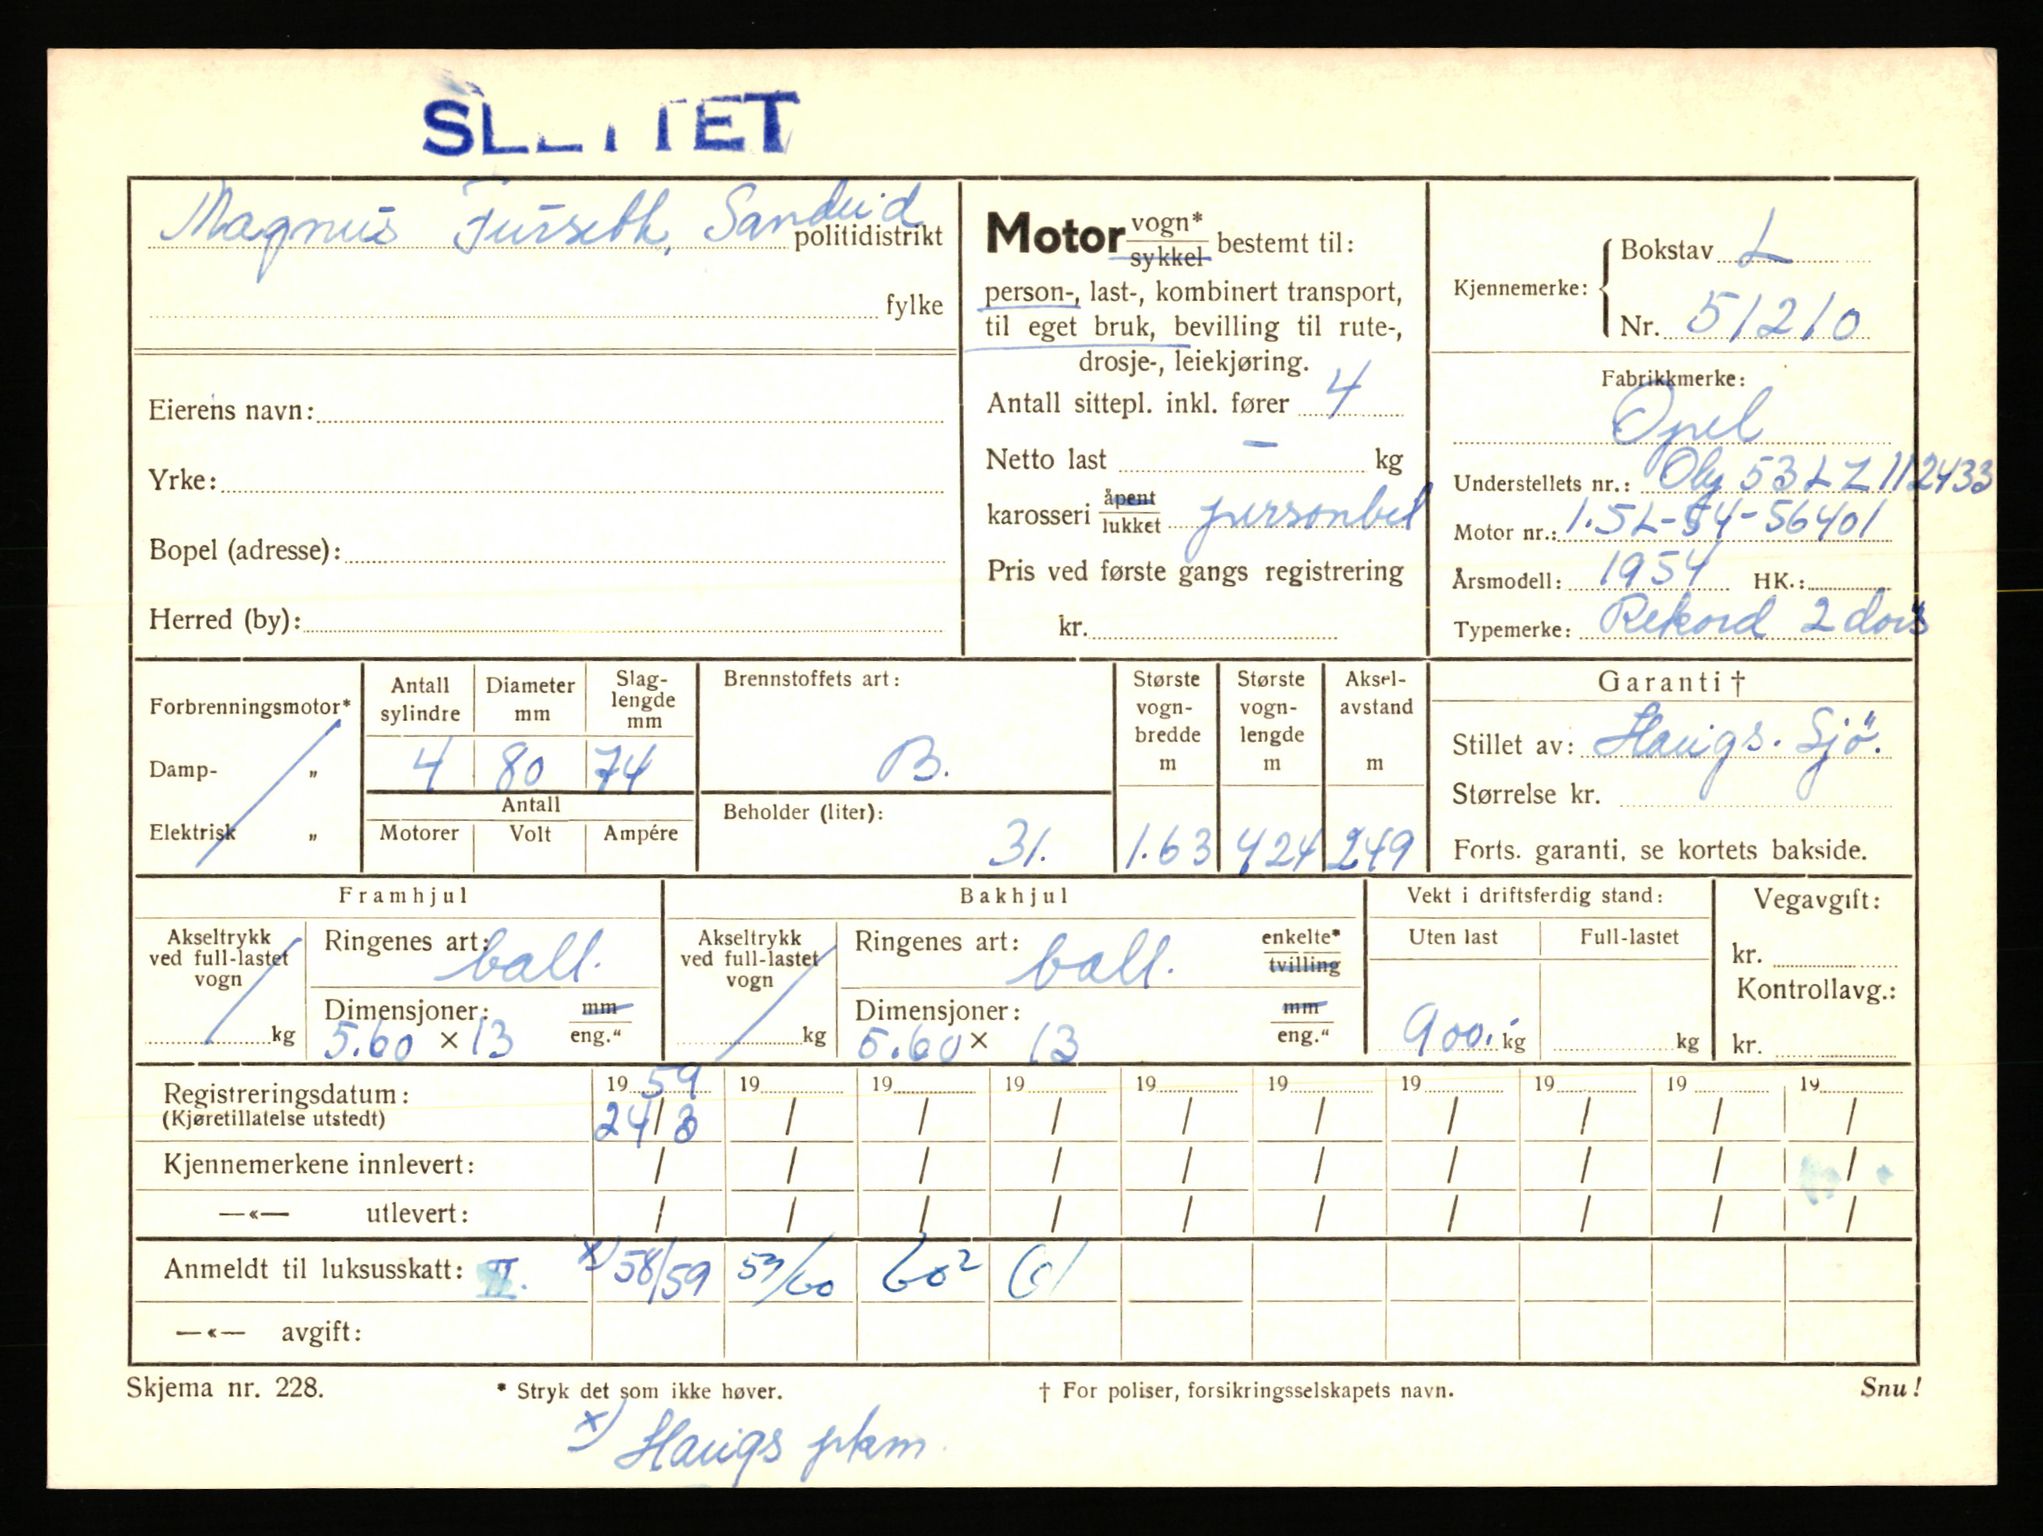 SLETTET
Magnus Furseth, Sandeid
politidistrikt
fylke
Eierens navn:
Yrke:
Bopel (adresse):
Herred (by):
Motor vogn* / sykkel bestemt til:
person-, last-, kombinert transport,
til eget bruk, bevilling til rute-,
drosje-, leiekjøring.
Antall sittepl. inkl. fører 4
Netto last — kg
karosseri åpent / lukket personbil
Pris ved første gangs registrering
kr.
Kjennemerke: Bokstav L
Nr. 51210
Fabrikkmerke:
Opel
Understellets nr.: Oly 53 LZ 112433
Motor nr.: 1.5L-54-56401
Årsmodell: 1954 HK.:
Typemerke: Rekord 2 dørs
Forbrenningsmotor*
Damp- „
Elektrisk „
Antall sylindre
Diameter mm
Slag-lengde mm
4 80 74
Antall
Motorer Volt Ampére
Brennstoffets art:
B.
Beholder (liter):
31.
Største vogn-bredde m
1.63
Største vogn-lengde m
424
Aksel-avstand m
249
Garanti †
Stillet av: Haugs. Sjø.
Størrelse kr.
Forts. garanti, se kortets bakside.
Framhjul
Akseltrykk
ved full-lastet
vogn
kg
Ringenes art: ball.
Dimensjoner: mm / eng.“
5.60 × 13
Bakhjul
Akseltrykk
ved full-lastet
vogn
kg
Ringenes art: ball. enkelte* / tvilling
Dimensjoner: mm / eng.“
5.60 × 13
Vekt i driftsferdig stand:
Uten last Full-lastet
900.- kg kg
Vegavgift:
kr.
Kontrollavg.:
kr.
Registreringsdatum: 19 59 19 19 19 19 19 19 19 19 19
(Kjøretillatelse utstedt) 24/3 / / / / / / / / /
Kjennemerkene innlevert: / / / / / / / / / /
—«— utlevert: / / / / / / / / / /
Anmeldt til luksusskatt: II. x) 58/59 59/60 60² 61
—«— avgift:
Skjema nr. 228. * Stryk det som ikke høver. † For poliser, forsikringsselskapets navn. Snu!
x) Haugs pkm